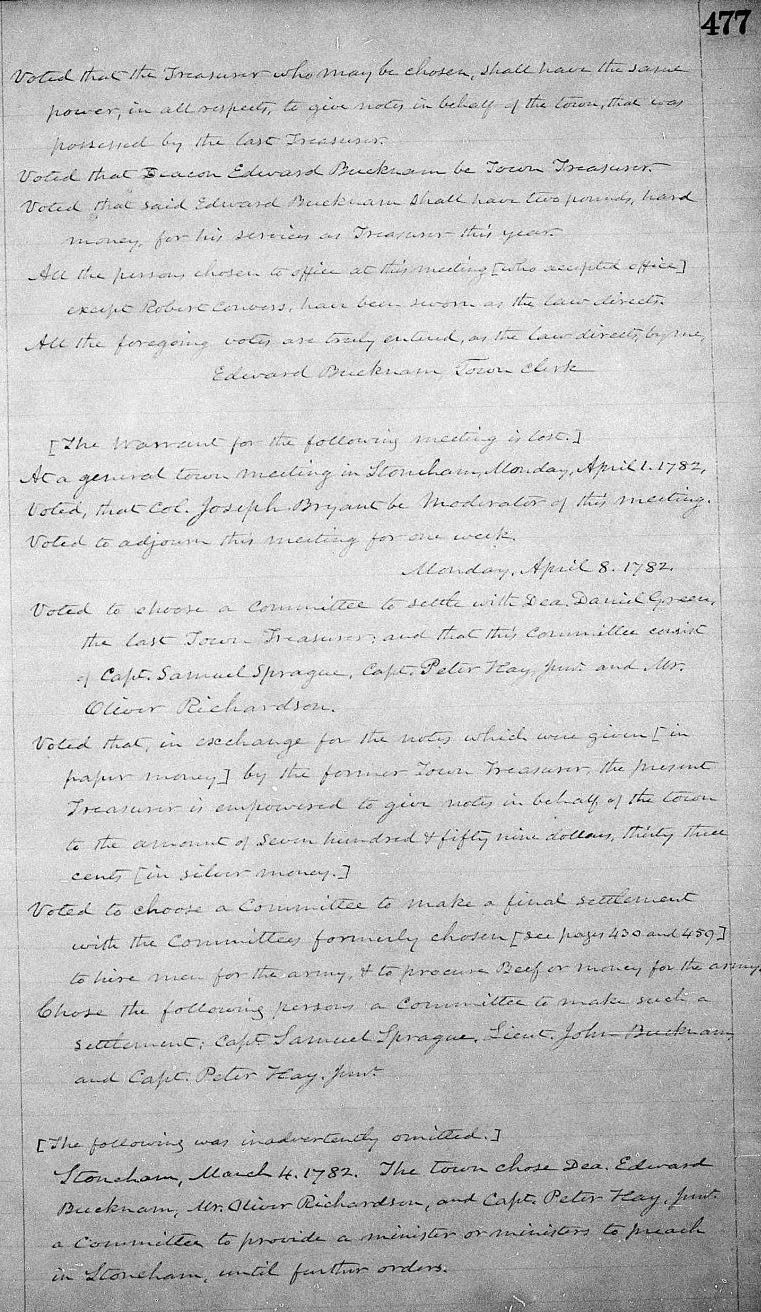 477
Voted that the Treasurer who may be chosen, shall have the same
power, in all respects, to give notes in behalf of the town, that was
possessed by the last Treasurer.
Voted that Deacon Edward Bucknam be Town Treasurer.
Voted that said Edward Bucknam shall have two pounds, hard
money, for his services as Treasurer this year.
All the persons chosen to office at this meeting [who accepted office]
except Robert Convers, have been sworn as the law directs.
All the foregoing votes are truly entered, as the law directs, by me,
Edward Bucknam Town Clerk
[The Warrant for the following meeting is lost.]
At a general town meeting in Stoneham, Monday, April 1. 1782,
Voted, that Col. Joseph Bryant be Moderator of this meeting.
Voted to adjourn this meeting for one week.
Monday, April 8. 1782.
Voted to choose a Committee to settle with Dea. Daniel Green,
the last Town Treasurer; and that this Committee consist
of Capt. Samuel Sprague, Capt. Peter Hay, Junr. and Mr.
Oliver Richardson.
Voted that, in exchange for the notes which were given [in
paper money] by the former Town Treasurer, the present
Treasurer is empowered to give notes in behalf of the town
to the amount of seven hundred & fifty nine dollars, thirty three
cents [in silver money.]
Voted to choose a Committee to make a final settlement
with the Committees formerly chosen [see pages 430 and 459]
to hire men for the army, & to procure Beef or money for the army.
Chose the following persons a Committee to make such a
settlement; Capt. Samuel Sprague, Lieut. John Bucknam,
and Capt. Peter Hay, Junr.
[The following was inadvertently omitted.]
Stoneham, March 4. 1782. The town chose Dea. Edward
Bucknam, Mr. Oliver Richardson, and Capt. Peter Hay, Junr.
a Committee to provide a minister or ministers to preach
in Stoneham, until further orders.